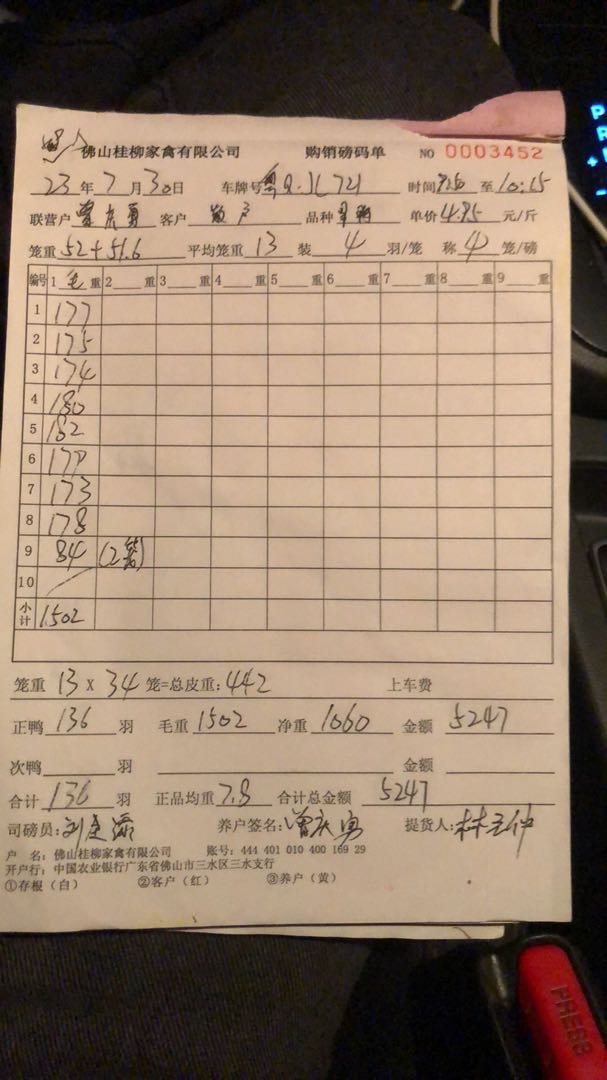 佛山桂柳家禽有限公司 购销磅码单 NO 0003452
23年7月30日 车牌号 粤Q·JL721 时间 至10:15
联营户 曾庆勇 客户 散户 品种 单价4.95 元/斤
笼重52+51.6 平均笼重13 装4羽/笼 称4笼/磅
编号 1毛重 2重 3重 4重 5重 6重 7重 8重 9重
1 177
2 175
3 174
4 180
5 182
6 177
7 173
8 178
9 84 (2笼)
10
小计 1502
笼重13X34笼=总皮重:442 上车费
正鸭136羽 毛重1502 净重1060 金额5247
次鸭 羽 金额
合计136羽 正品均重7.8 合计总金额5247
司磅员: 养户签名:曾庆勇 提货人:
户 名:佛山桂柳家禽有限公司 账号:444 401 010 400 169 29
开户行:中国农业银行广东省佛山市三水区三水支行
①存根(白) ②客户(红) ③养户(黄)
P
R
PRESS